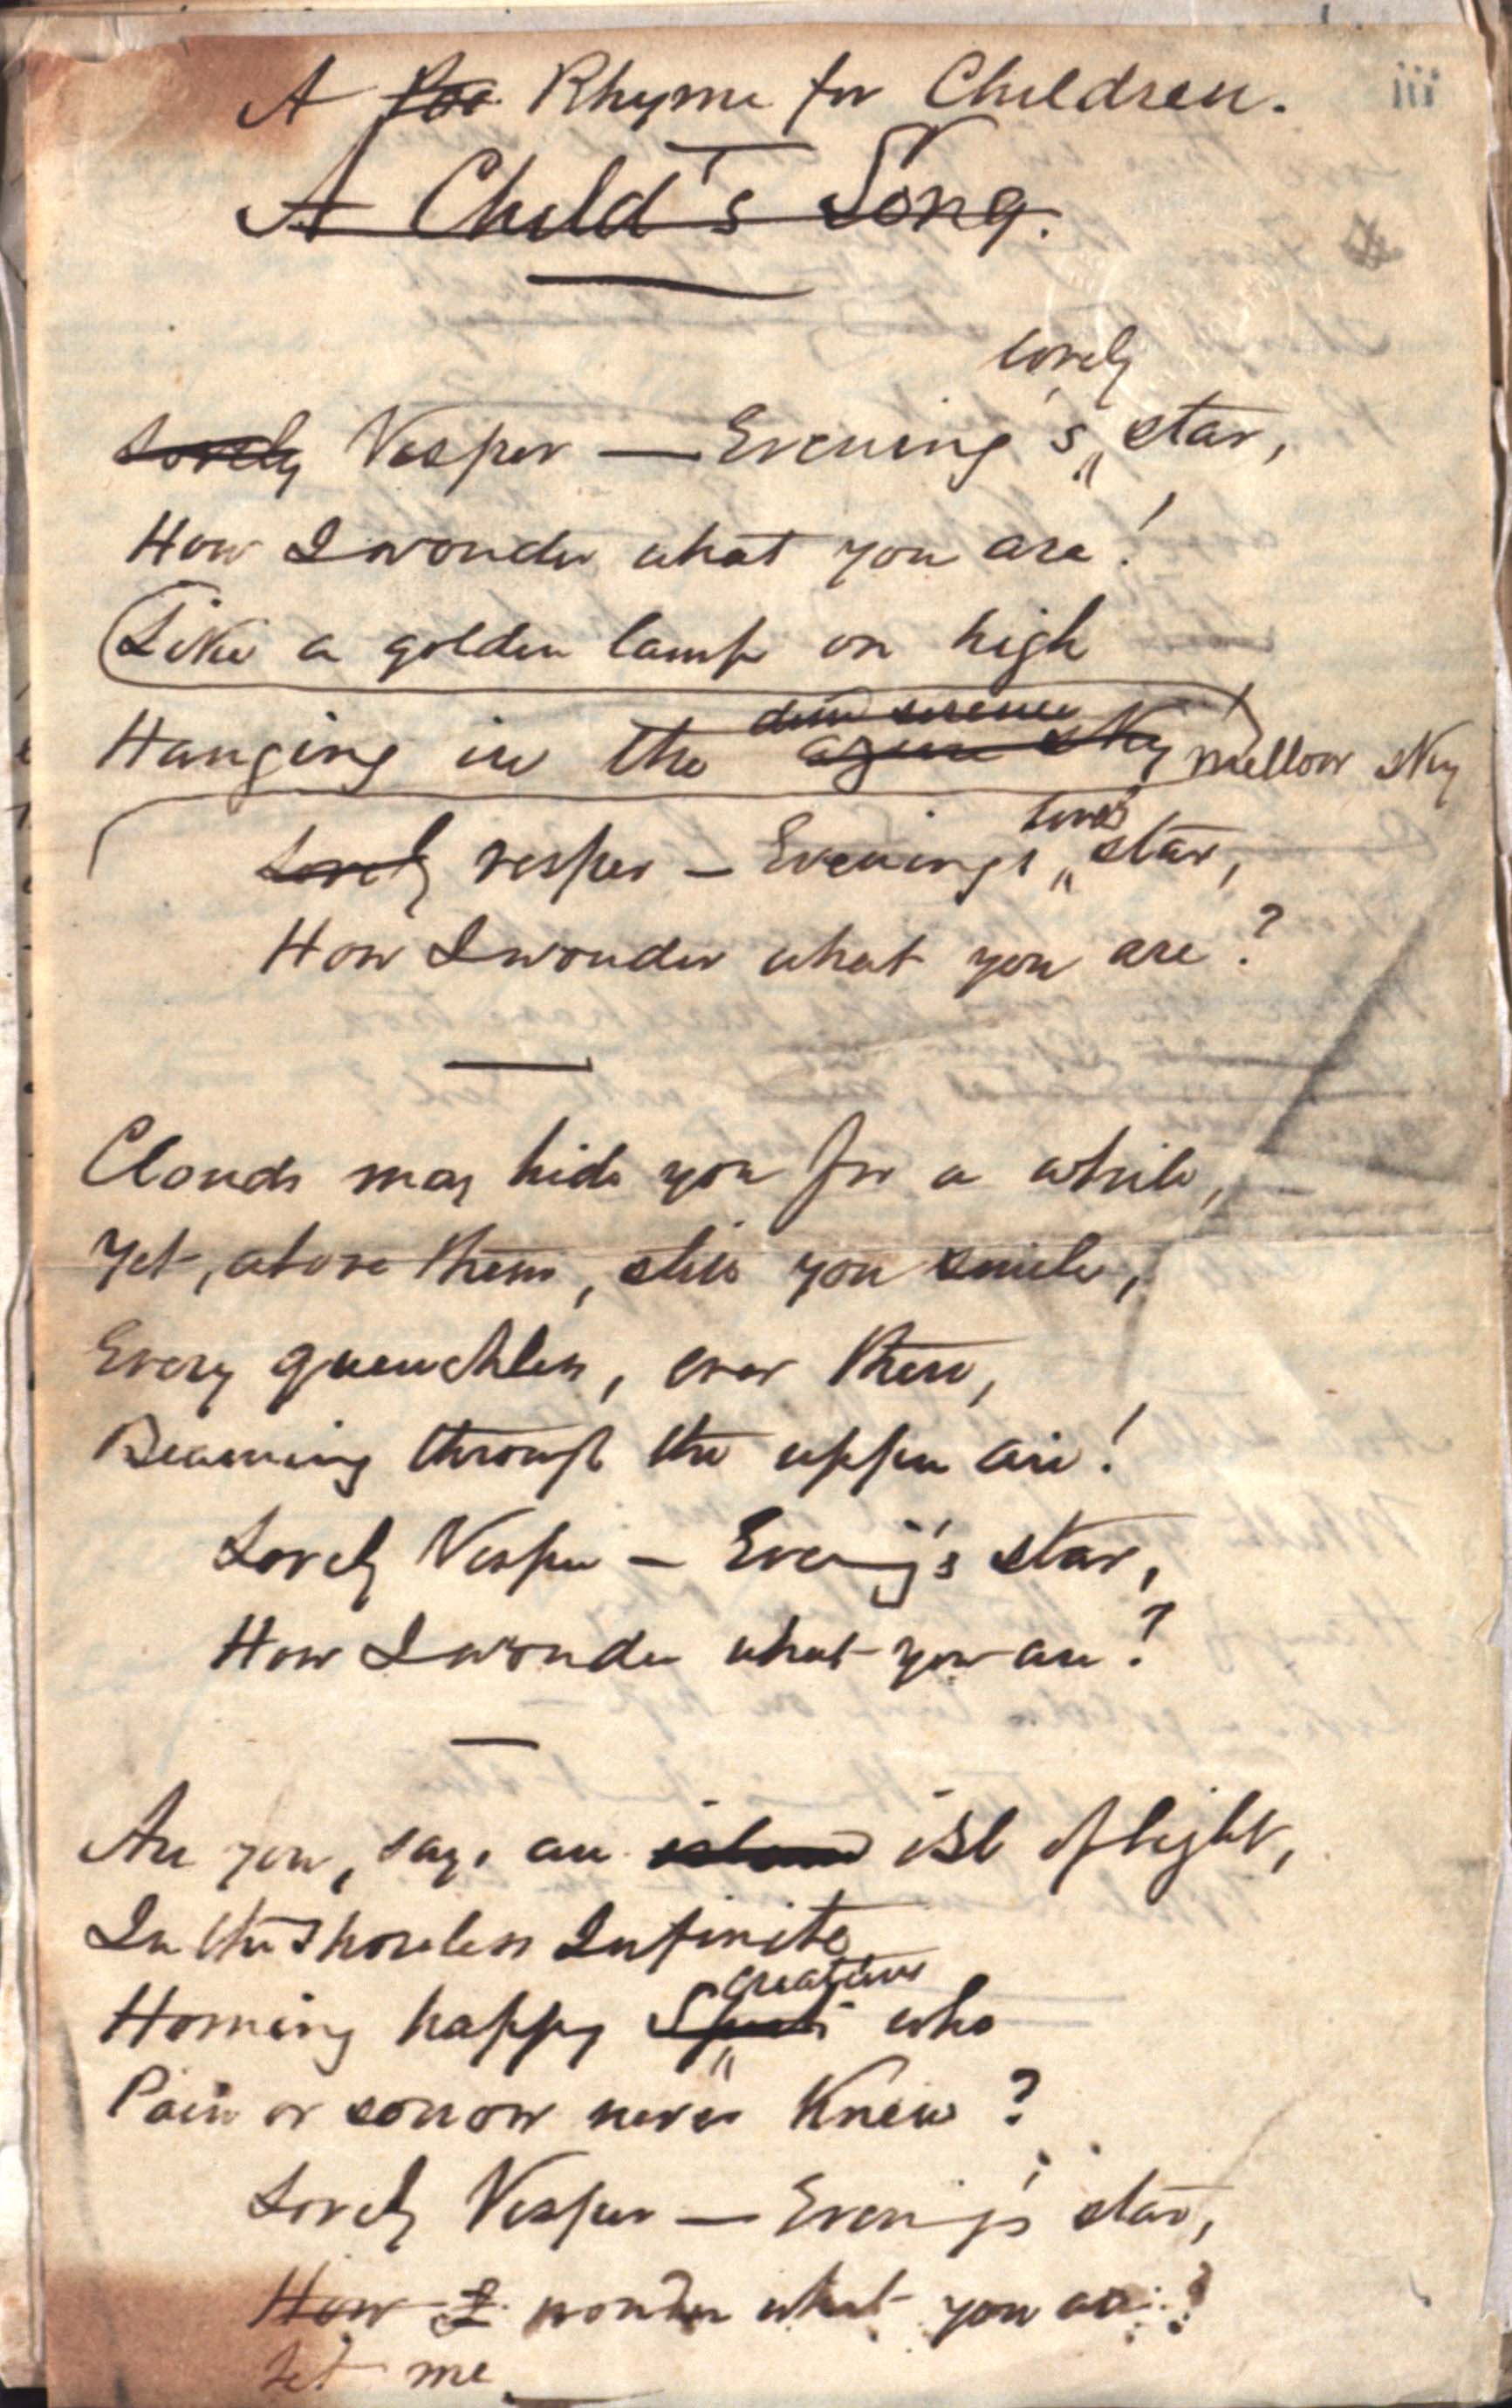 A Poe Rhyme for Children.
A Child's Song.
lovely
Lovely Vesper — Evening's star,
How I wonder what you are!
Like a golden lamp on high
dim serene
Hanging in the azure sky mellow sky
lovely
Lovely vesper — Evening's star,
How I wonder what you are?
Clouds may hide you for a while,
Yet, above them, still you smile,
Every quenchless, ever there,
Beaming through the upper air!
Lovely Vesper — Evening's star,
How I wonder what you are?
Are you, say, an island isle of light,
In the Shoreless Infinite
creatures
Homing happy Spirits who
Pain or sorrow never knew?
Lovely Vesper — Evening's star,
How I wonder what you are?
Let me